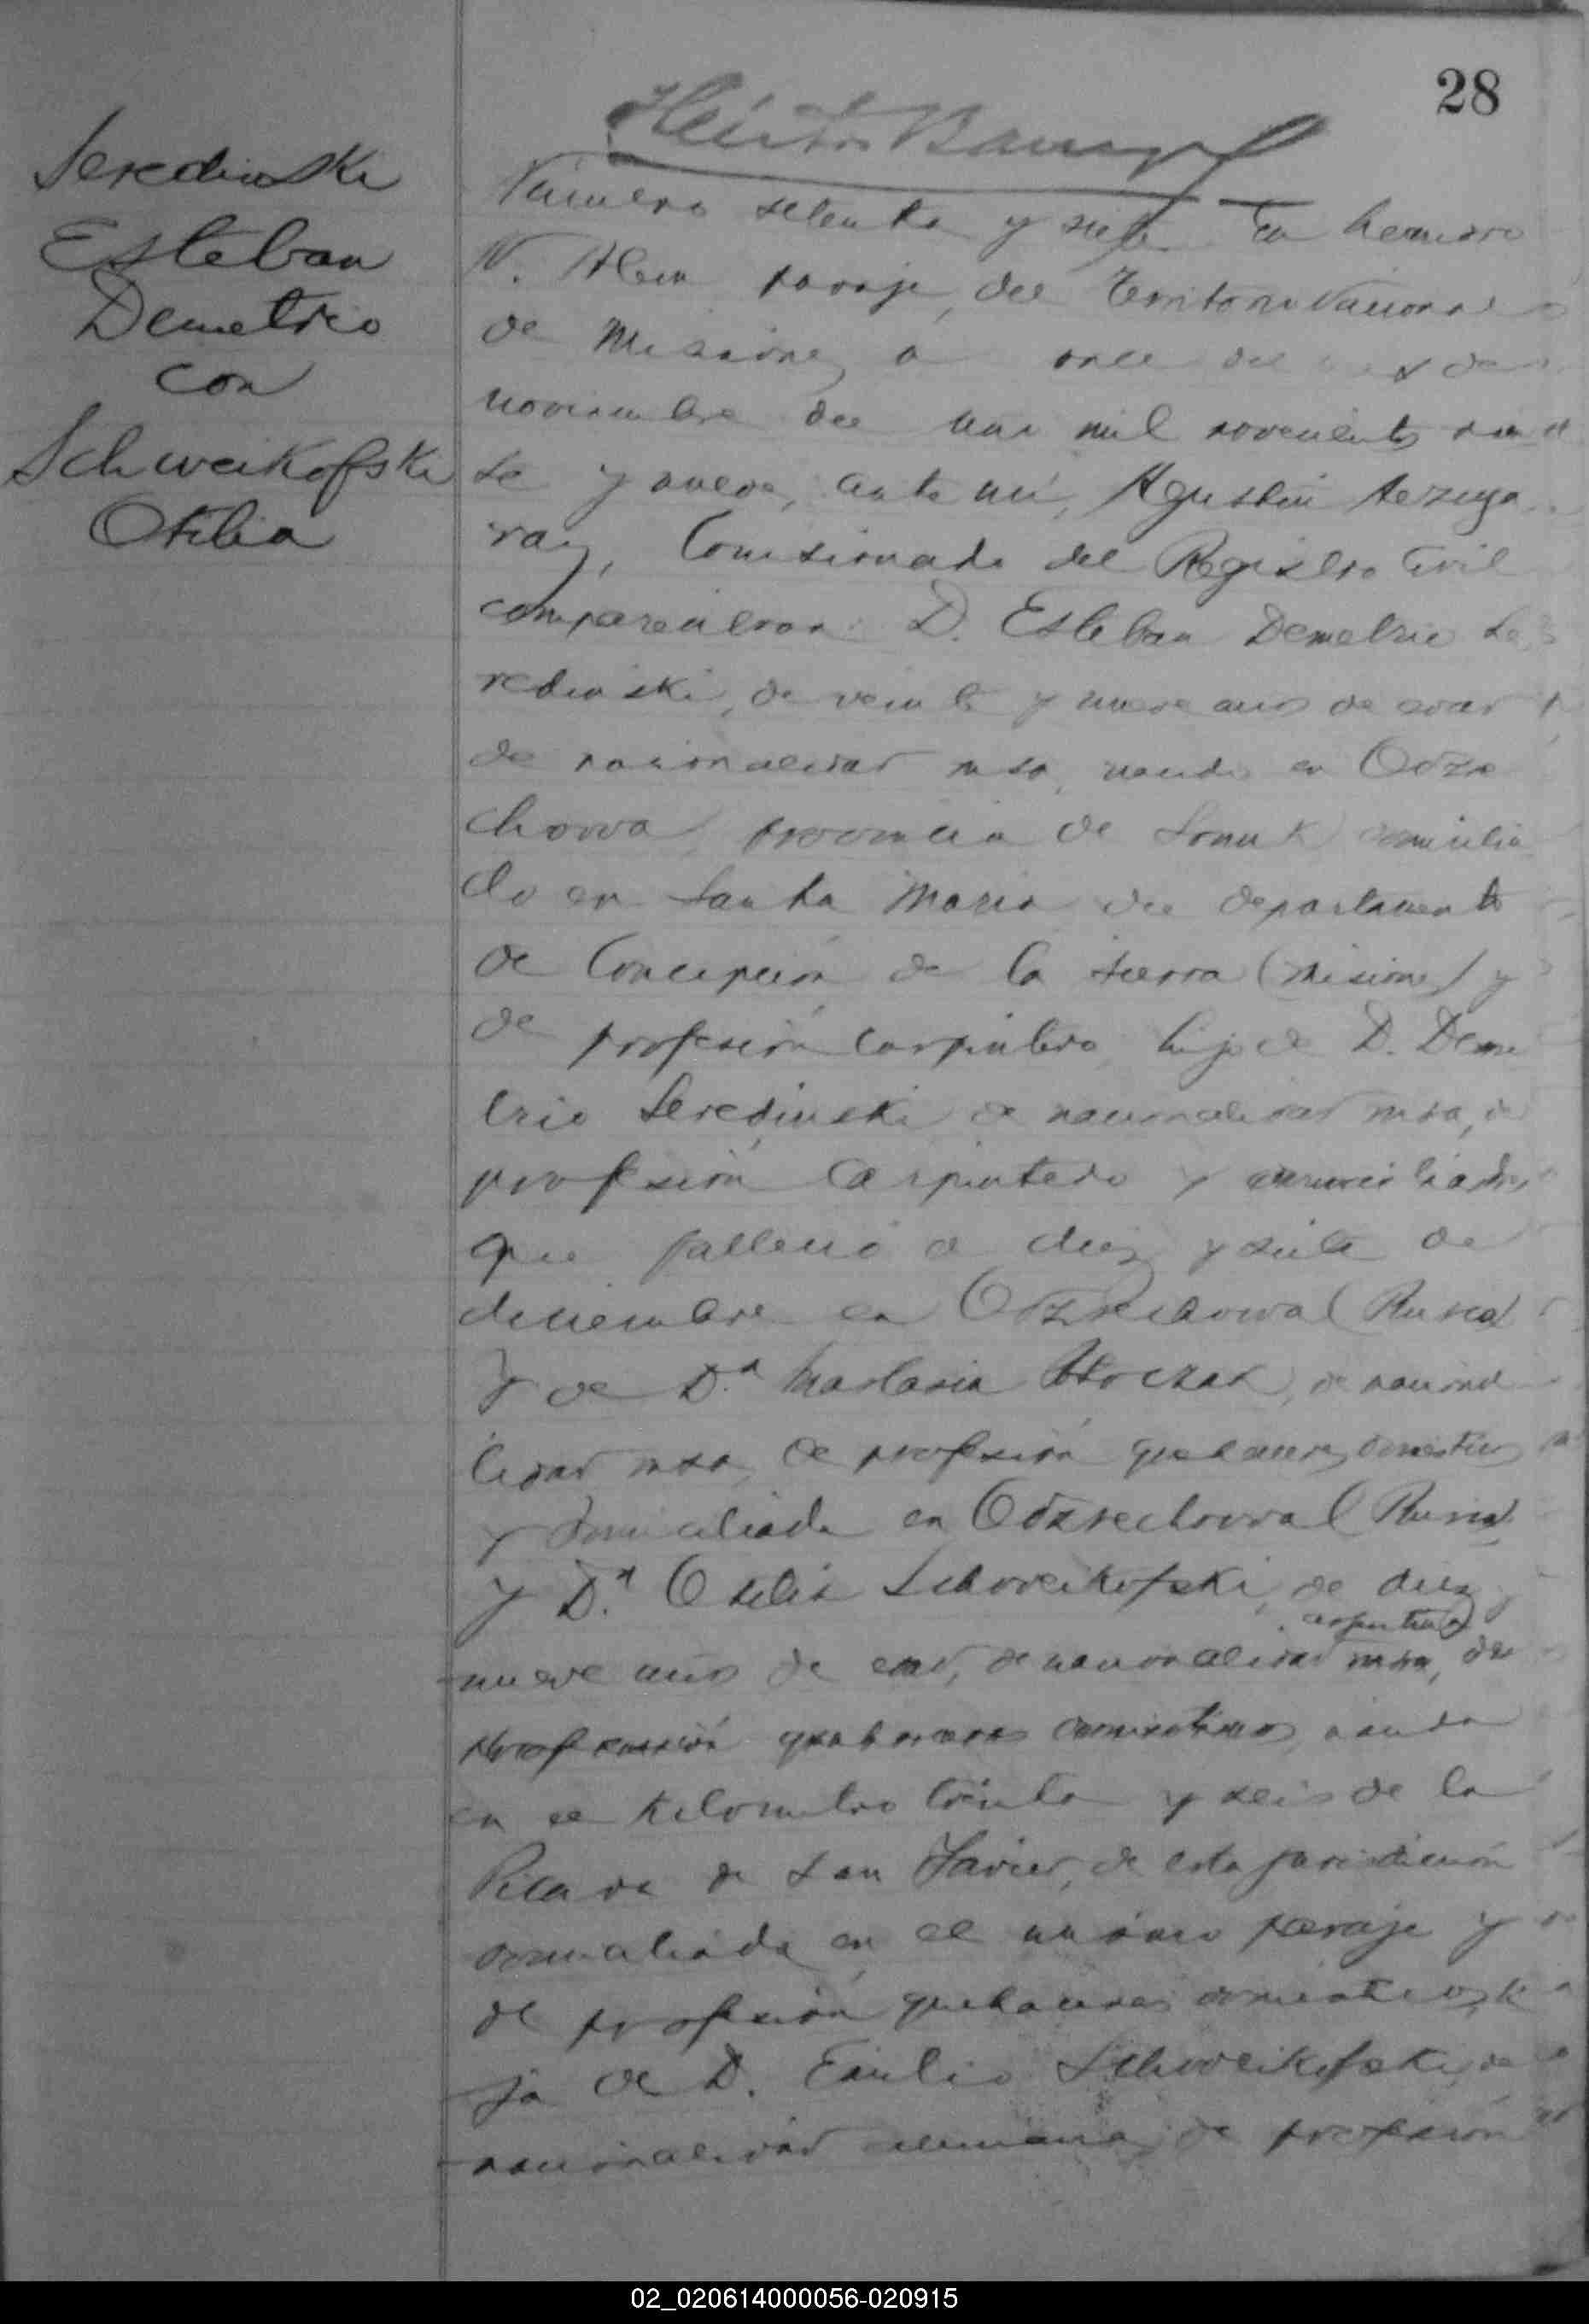 28
Seredinski
Esteban
Demetrio
con
Schweikofski
Otilia
Número setenta y siete En Leandro
N. Alem paraje, del Territorio Nacional
de Misiones a once del mes de
noviembre de mil novecientos
te y nueve, ante mi, Agustin Verzuga
ray, Comisionado del Registro Civil
comparecieron D. Esteban Demetrio Se
redinski, de veinte y nueve años de edad
de nacionalidad rusa, nacido en Odzre
chowa, provincia de domicilia
do en Santa Maria del departamento
de Concepción de la Sierra (Misiones) y
de profesión carpintero, hijo de D. Deme
trio Seredinski de nacionalidad rusa, de
profesión carpintero y domiciliado
que falleció a diez y siete de
diciembre en Odzrechowa (Rusia)
y de Dª de naciona
lidad rusa, de profesión quehaceres domesticos
y domiciliada en Odzrechowa (Rusia)
y Dª Otilia Schweikofski, de diez y
argentina
nueve años de edad, de nacionalidad rusa, de
profesión quehaceres domesticos, nacida
en el kilometro treinta y seis de la
Picada de San Javier, de esta jurisdicción
domiciliada en el mismo paraje y
de profesión quehaceres domesticos, hi
ja de D. Emilio Schweikofski, de
nacionalidad alemana, de profesión
02_020614000056-020915